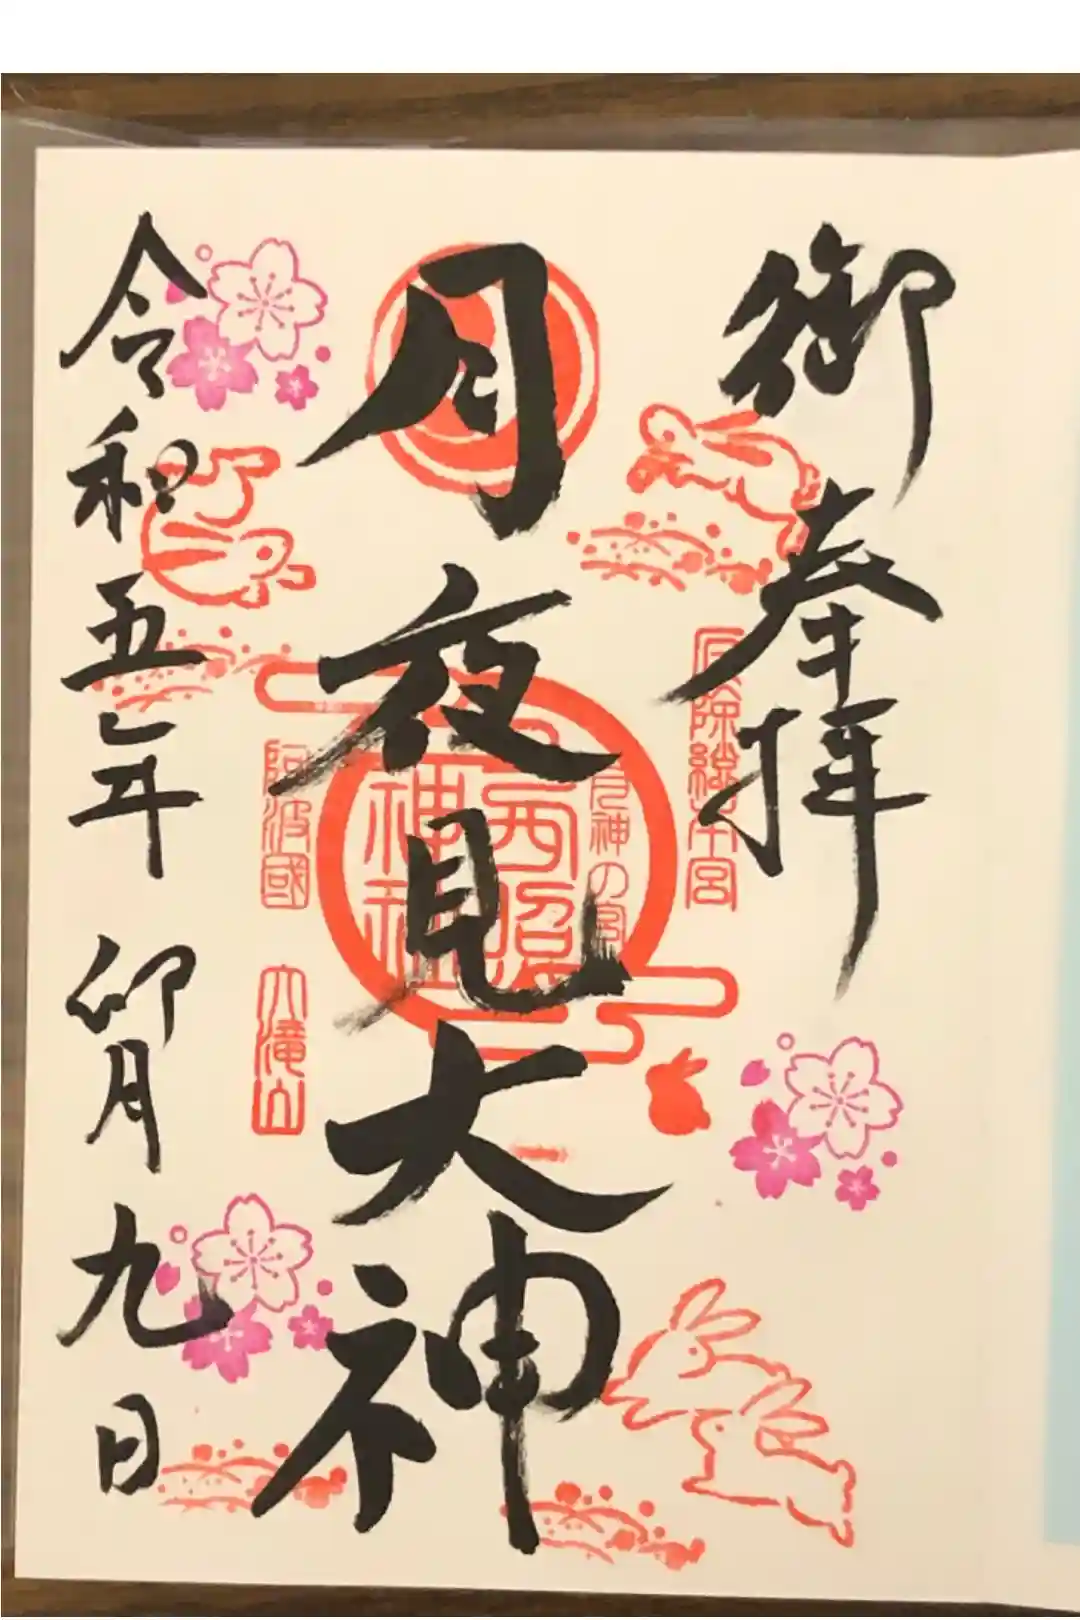 御奉拝
厄除総本宮
月神の宮
月夜見大神
西照
神社
阿波國 大滝山
令和五年卯月九日